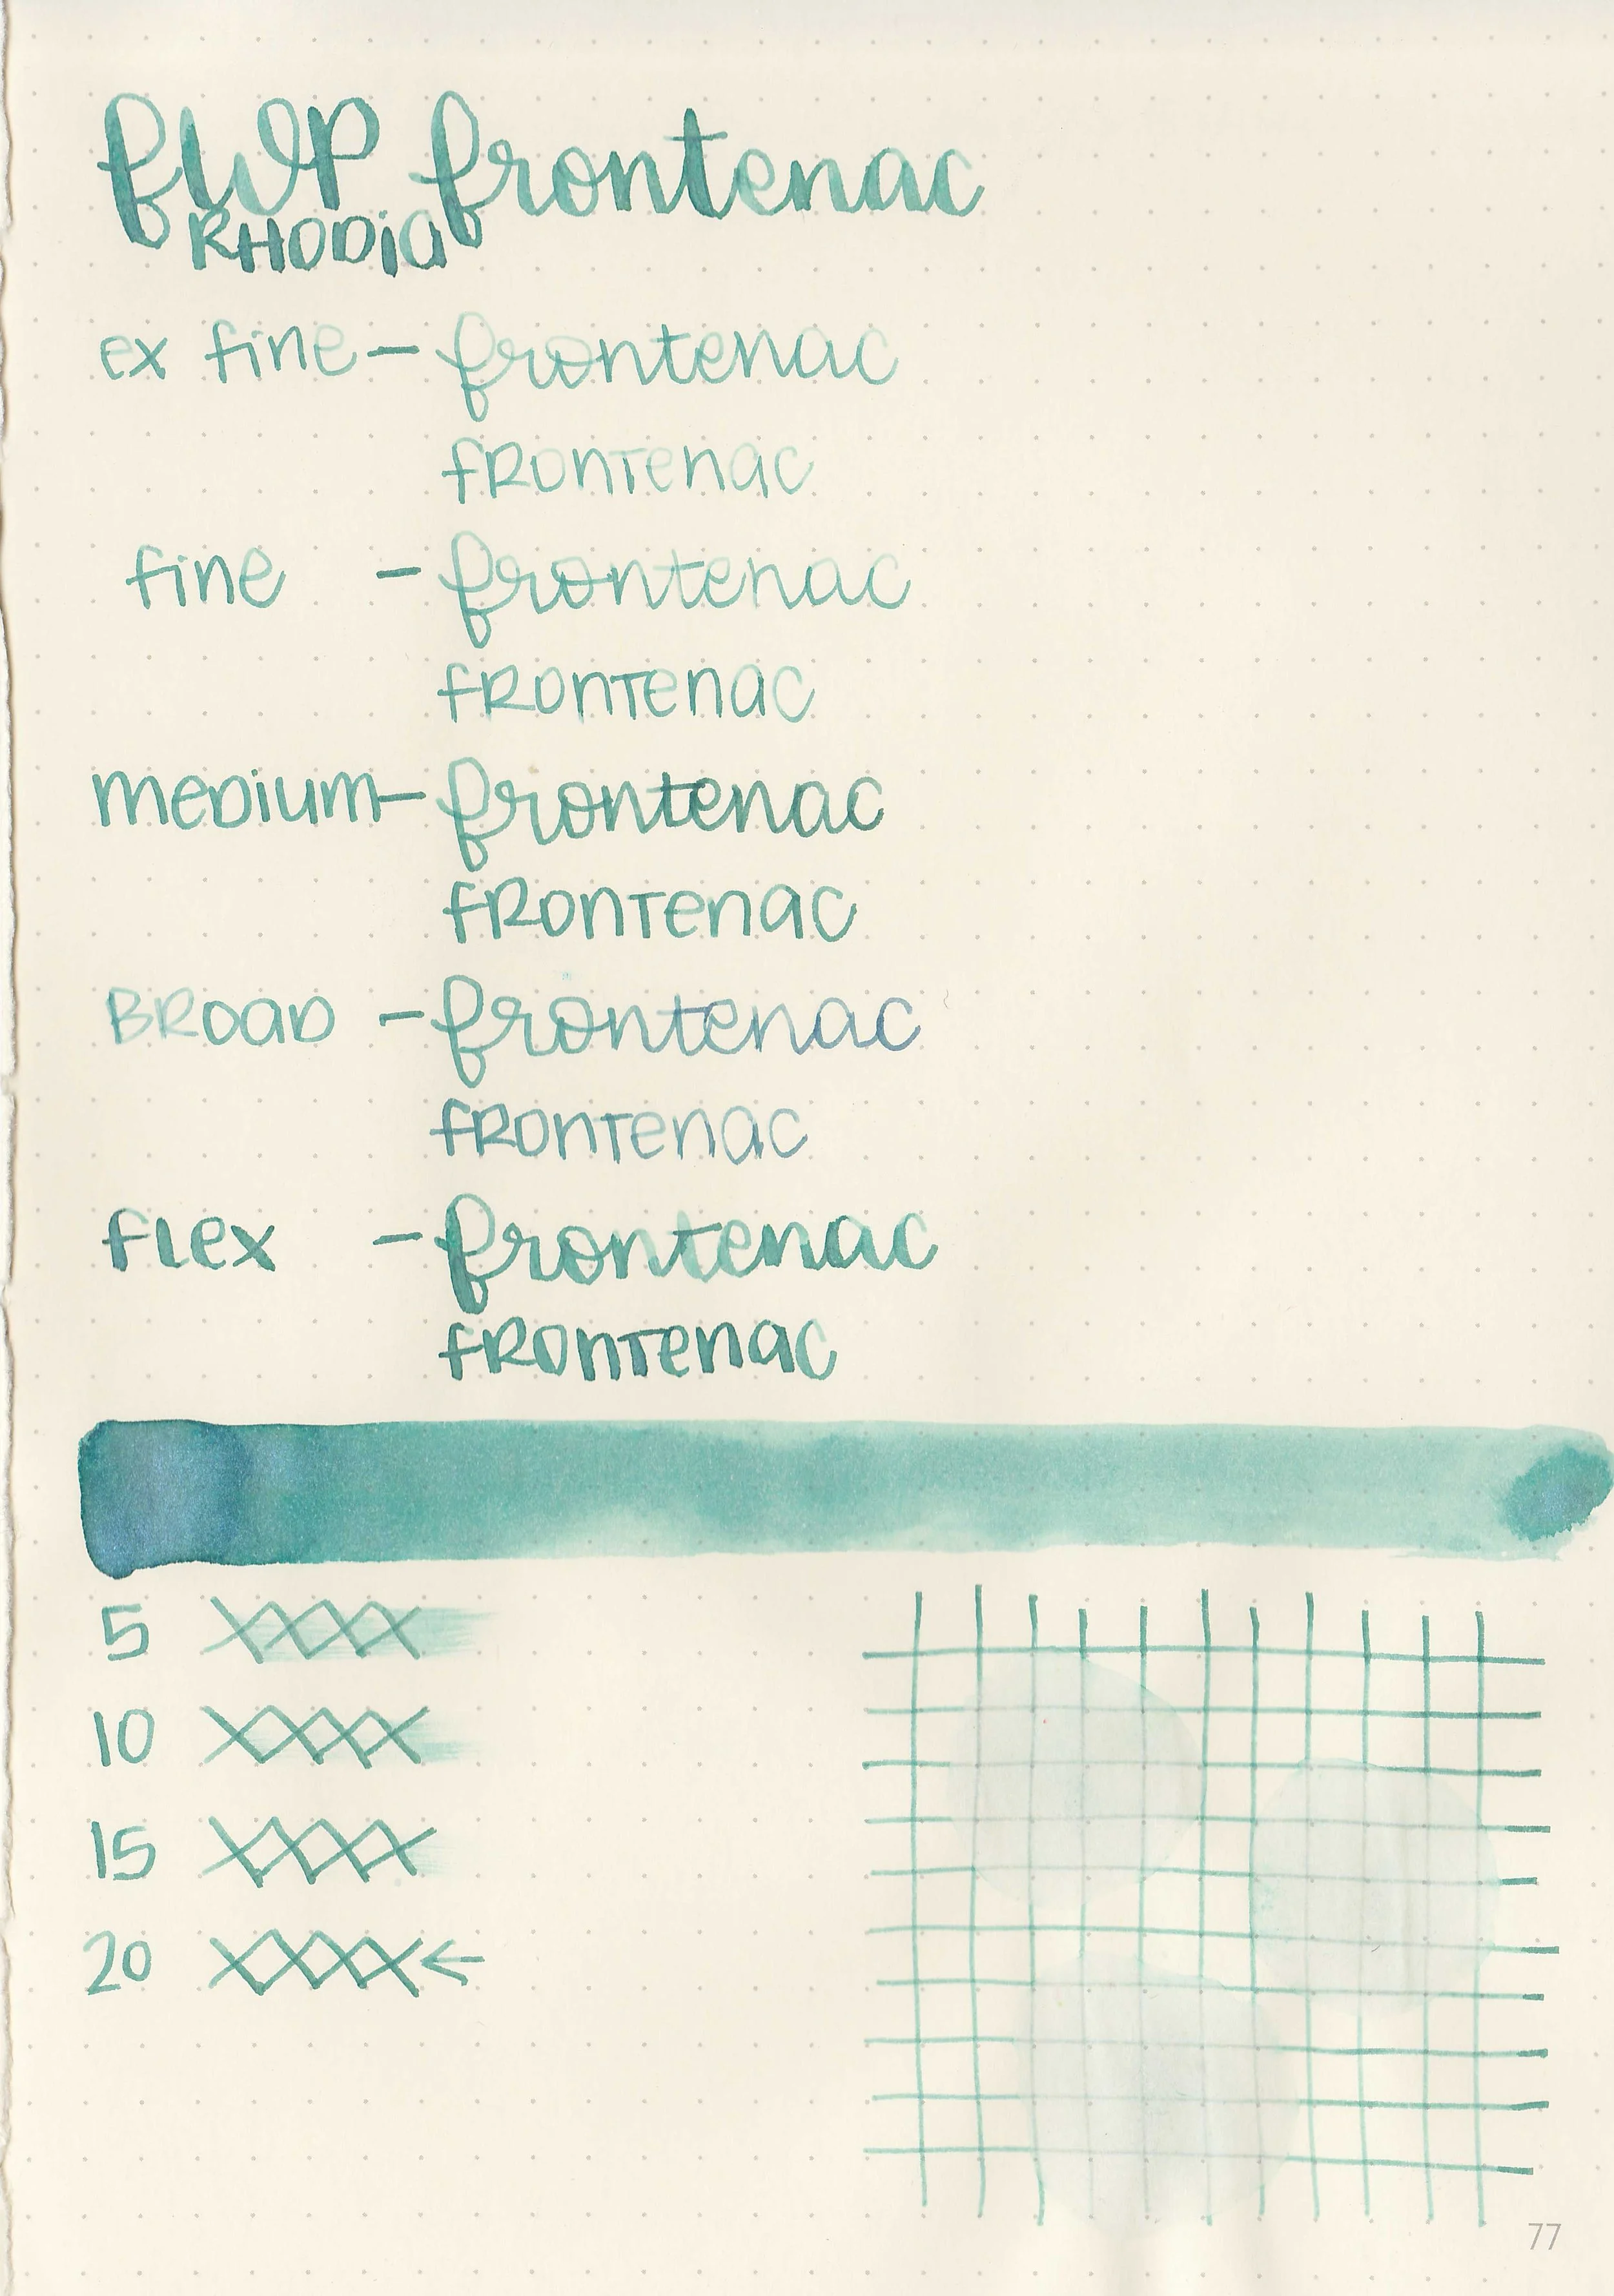 fWP frontenac
RHODIA
ex fine - frontenac
fRontenac
fine - frontenac
fRontenac
meDium - frontenac
fRontenac
BROaD - frontenac
fRontenac
fLex - frontenac
fRontenac
5 XXXX
10 XXXX
15 XXXX
20 XXXX ←
77